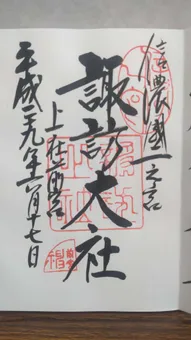 信濃國一之宮
諏訪大社
上社本宮
平成二十九年八月十七日